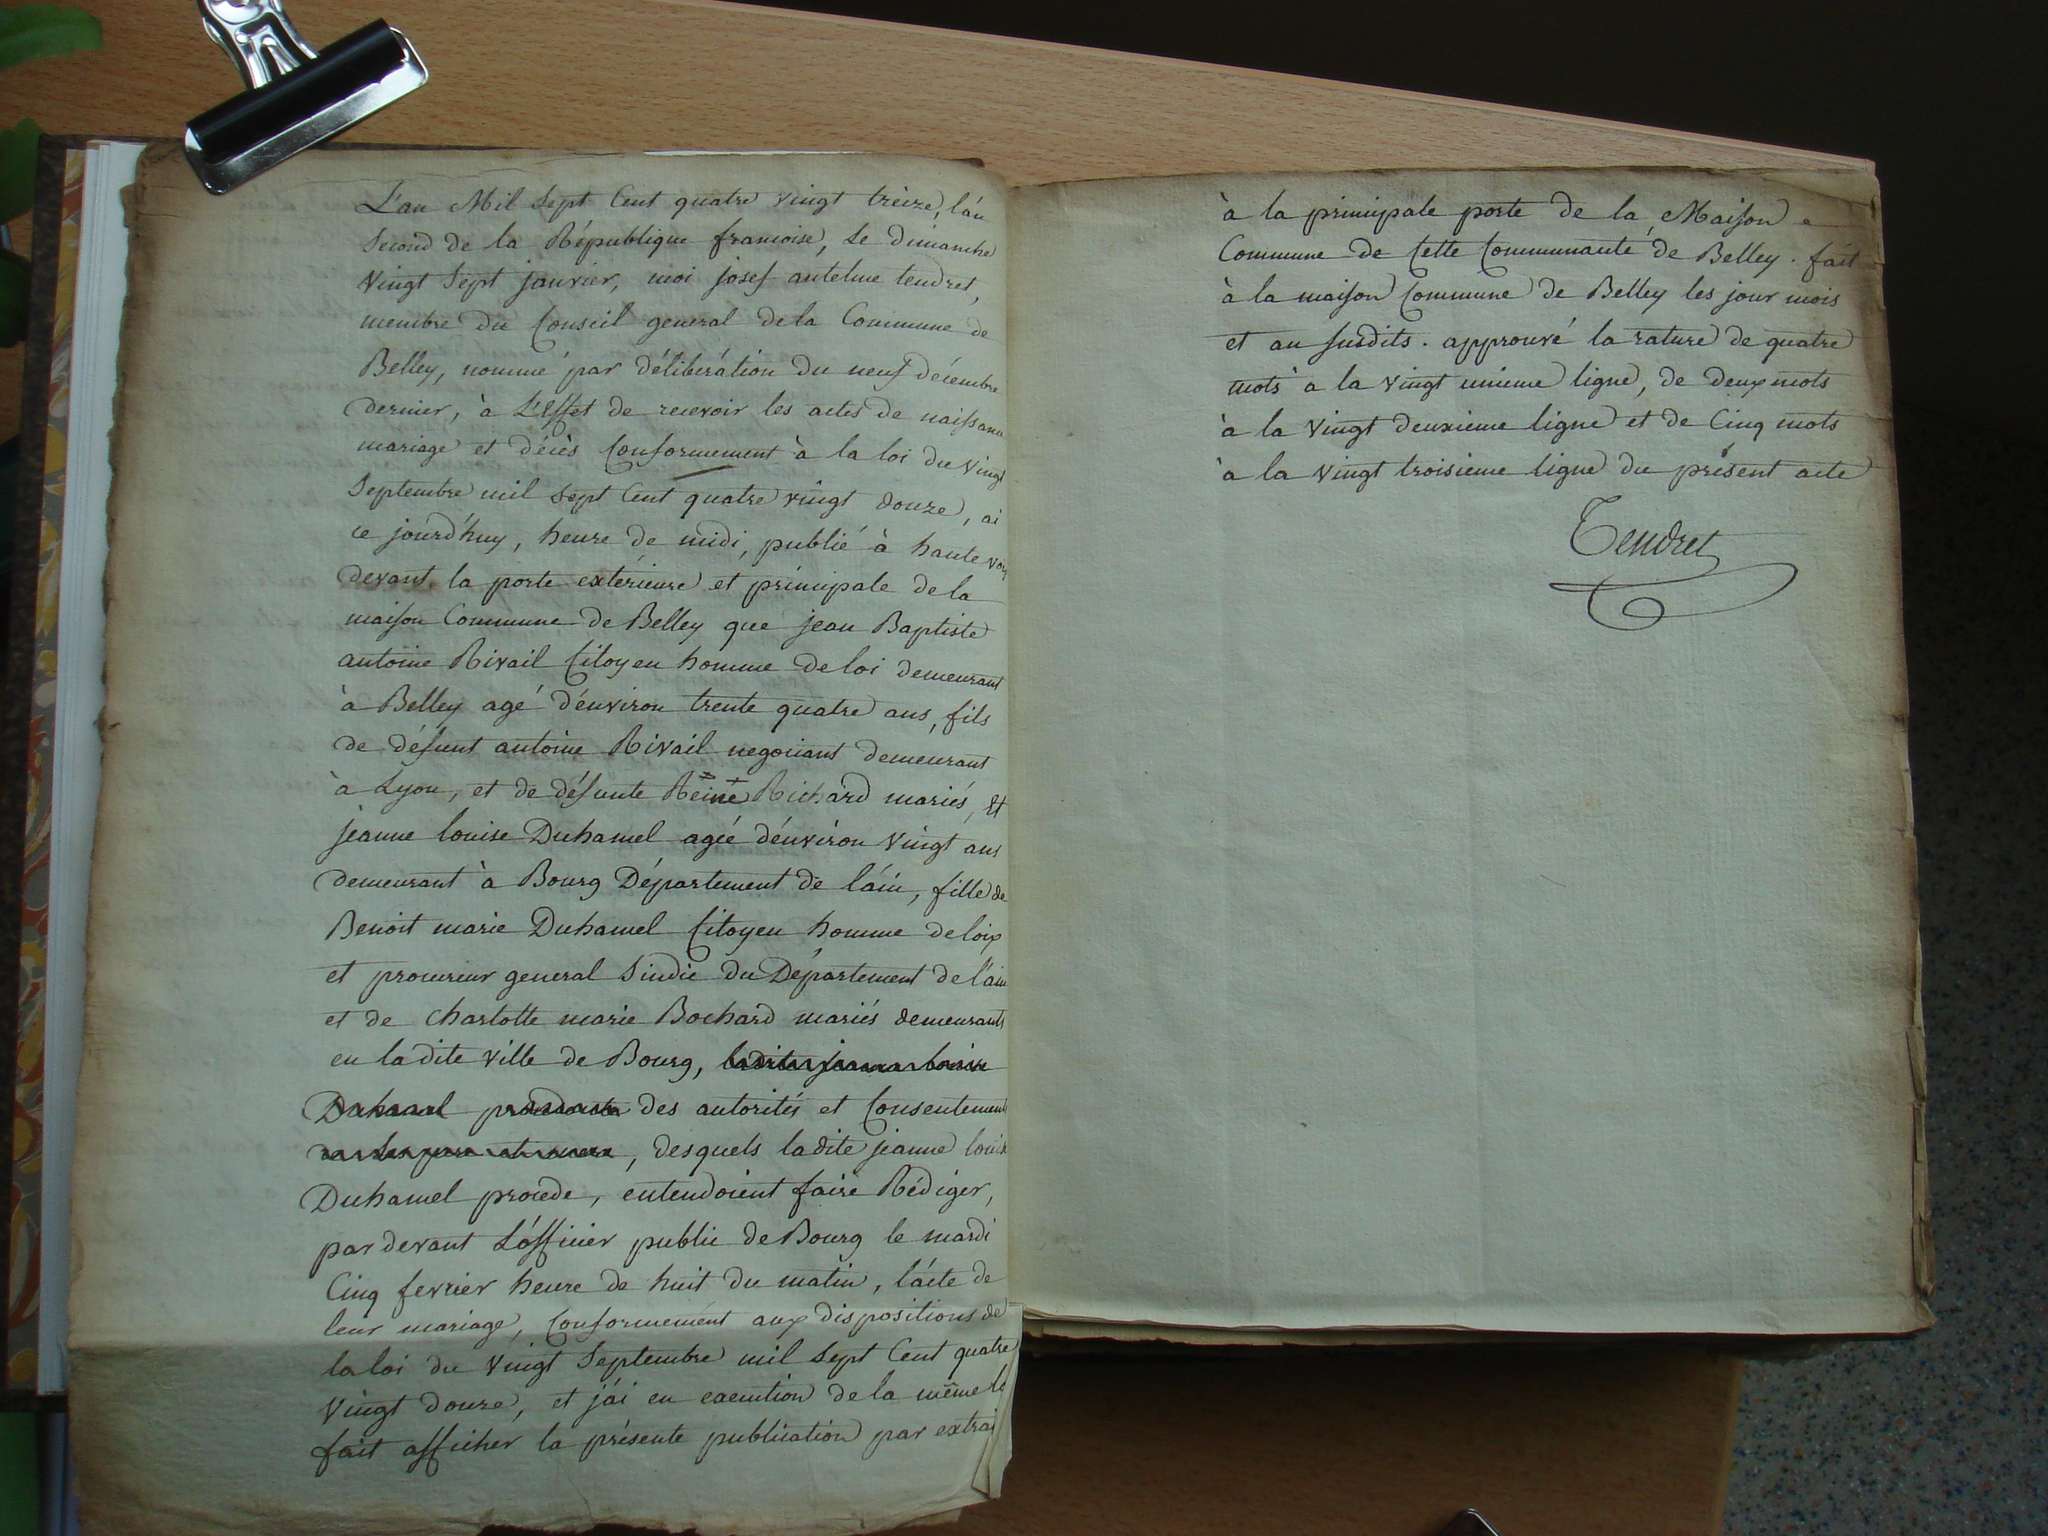 L'an Mil Sept Cent quatre vingt treize, l'an
Second de la République francoise, Le dimanche
Vingt Sept janvier, moi josef antelme tendret,
membre du Conseil general de la Commune de
Belley, nommé par délibération du neuf décembre
dernier, à L'Effet de recevoir les actes de naissance
mariage et décès Conformement à la loi du vingt
Septembre mil Sept Cent quatre vingt douze, ai
ce jourd'huy, heure de midi, publié à haute voix
devant la porte extérieure et principale de la
maison Commune de Belley que jean Baptiste
antoine Rivail Citoyen homme de loi demeurant
à Belley agé d'environ trente quatre ans, fils
de défunt antoine Rivail negociant demeurant
à Lyon, et de défunte Reine Richard mariés, Et
jeanne louise Duhamel agée d'environ Vingt ans
demeurant à Bourg Département de l'ain, fille de
Benoit marie Duhamel Citoyen homme de loix
et procureur general Sindic du Département de l'ain
et de charlotte marie Bochard mariés demeurants
en ladite ville de Bourg, ladite jeanne louise
Duhamel procedante des autorités et Consentement
de ses pere et mere, desquels ladite jeanne louise
Duhamel procede, entendoient faire Rédiger,
par devant L'officier public de Bourg le mardi
Cinq fevrier heure de huit du matin, l'acte de
leur mariage, Conformément aux dispositions de
la loi du Vingt Septembre mil Sept Cent quatre
Vingt douze, et j'ai en execution de la même loi
fait afficher la présente publication par extrait
à la principale porte de la Maison
Commune de Cette Communauté de Belley. fait
à la maison Commune de Belley les jour mois
et an susdits. approuvé la rature de quatre
mots a la vingt unieme ligne, de deux mots
à la Vingt deuxieme ligne et de Cinq mots
à la Vingt troisieme ligne du présent acte
Tendret